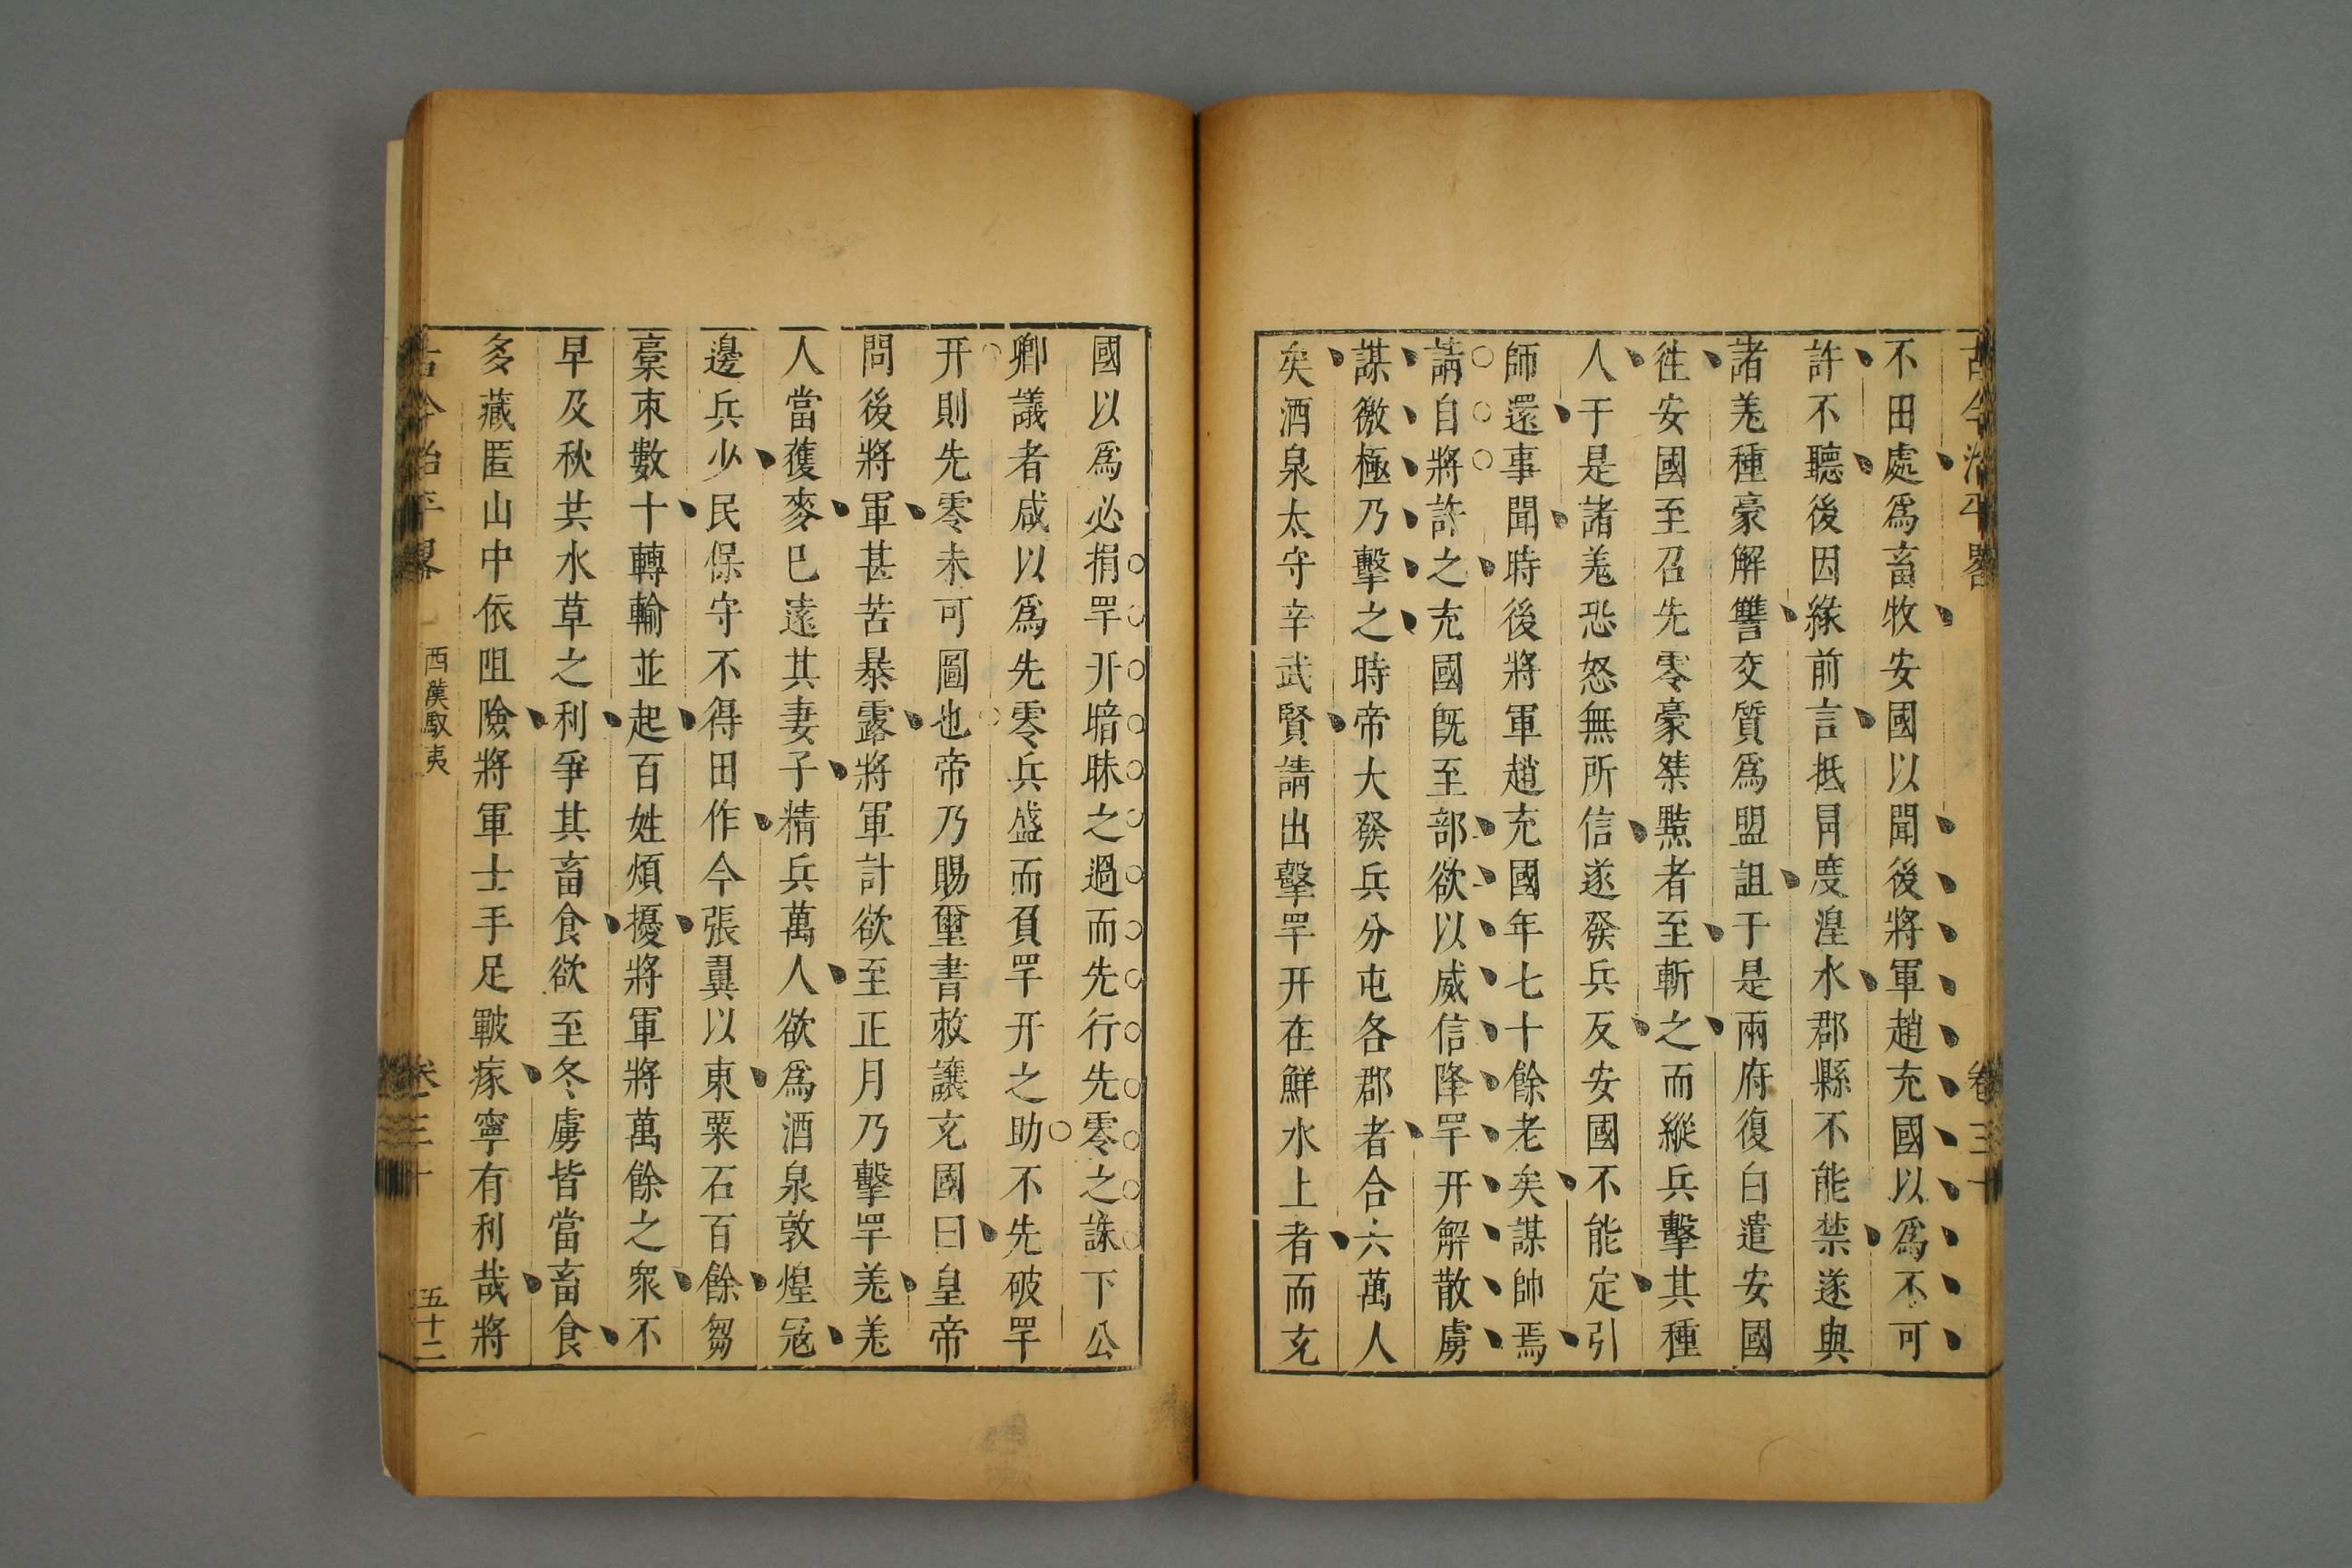 古今治平畧
卷三十
不田處爲畜牧安國以聞後將軍趙充國以爲不可
許不聽後因緣前言抵冐度湟水郡縣不能禁遂與
諸羌種豪解讐交質爲盟詛于是兩府復白遣安國
徃安國至召先零豪桀黠者至斬之而縱兵擊其種
人于是諸羌恐怒無所信遂發兵反安國不能定引
師還事聞時後將軍趙充國年七十餘老矣謀帥焉
請自將許之充國旣至部欲以威信降罕幵解散虜
謀徼極乃擊之時帝大發兵分屯各郡者合六萬人
矣酒泉太守辛武賢請出擊罕幵在鮮水上者而充
國以爲必捐罕幵暗昧之過而先行先零之誅下公
卿議者咸以爲先零兵盛而負罕幵之助不先破罕
幵則先零未可圖也帝乃賜璽書敕讓充國曰皇帝
問後將軍甚苦暴露將軍計欲至正月乃擊罕羌羌
人當獲麥巳遠其妻子精兵萬人欲爲酒泉敦煌寇
邊兵少民保守不得田作今張翼以東粟石百餘芻
稾束數十轉輸並起百姓煩擾將軍將萬餘之衆不
早及秋共水草之利爭其畜食欲至冬虜皆當畜食
多藏匿山中依阻險將軍士手足皸瘃寧有利哉將
古今治平畧
西漢馭夷
卷三十
五十二